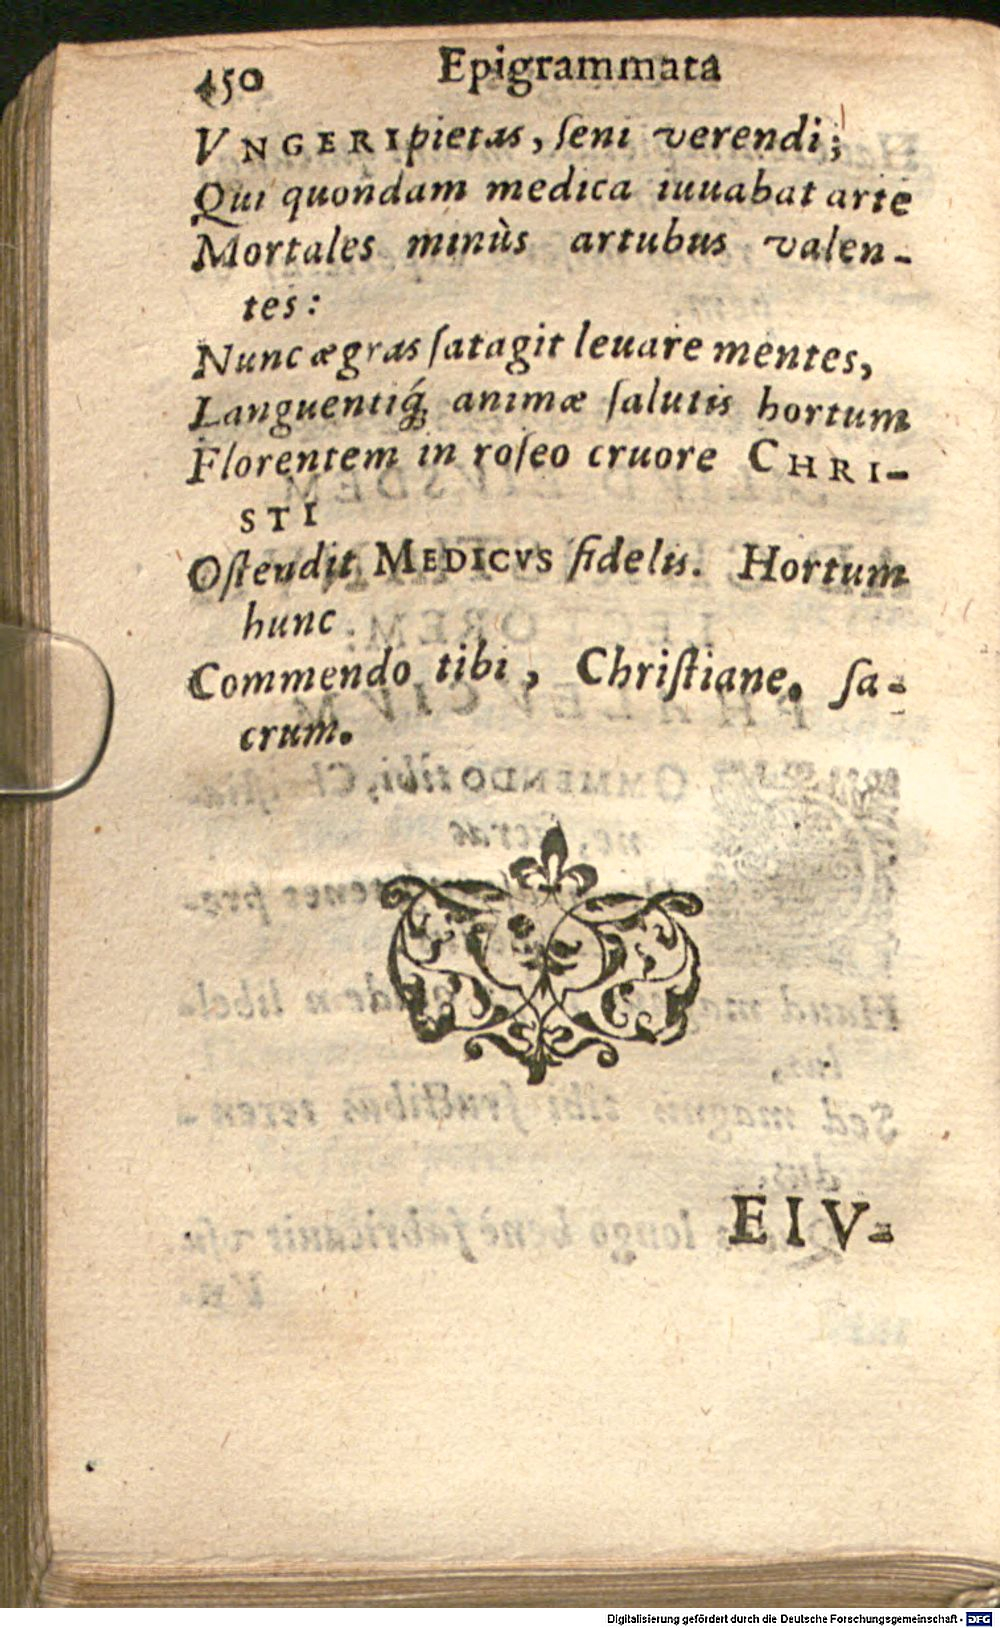 450 Epigrammata
VNGERI pietas, ſeni verendi;
Qui quondam medica iuuabat arte
Mortales minùs artubus valen-
tes:
Nunc ægras ſatagit leuare mentes,
Languentiq́; animæ ſalutis hortum
Florentem in roſeo cruore CHRI-
STI
Oſtendit MEDICVS fidelis. Hortum
hunc
Commendo tibi, Chriſtiane, ſa-
crum.
EIV-
Digitalisierung gefördert durch die Deutsche Forschungsgemeinschaft - DFG